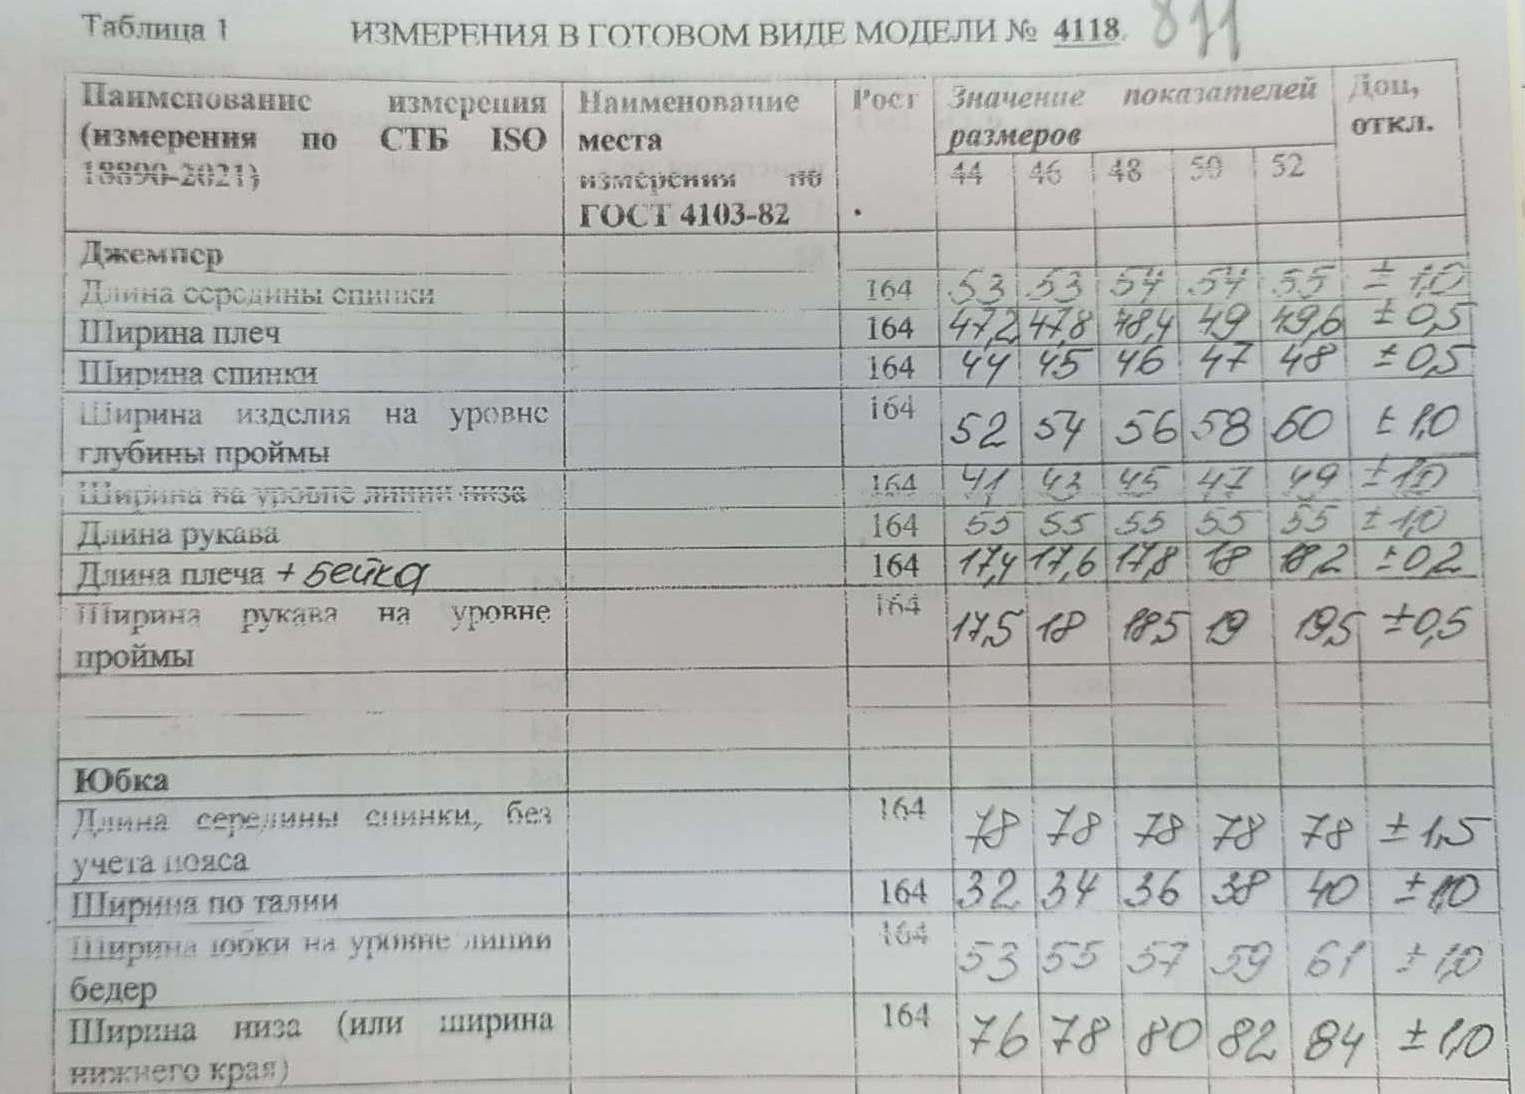 Таблица 1 ИЗМЕРЕНИЯ В ГОТОВОМ ВИДЕ МОДЕЛИ № 4118. 811
Наименование измерения Наименование Рост Значение показателей Доп,
(измерения по СТБ ISO места размеров откл.
18890-2021) измерения по 44 46 48 50 52
ГОСТ 4103-82
Джемпер
Длина середины спинки 164 53 53 54 54 55 ± 1,0
Ширина плеч 164 47,2 47,8 48,4 49 49,6 ± 0,5
Ширина спинки 164 44 45 46 47 48 ± 0,5
Ширина изделия на уровне 164 52 54 56 58 60 ± 1,0
глубины проймы
Ширина на уровне линии низа 164 41 43 45 47 49 ± 1,0
Длина рукава 164 55 55 55 55 55 ± 1,0
Длина плеча + бейка 164 17,4 17,6 17,8 18 18,2 ± 0,2
Ширина рукава на уровне 164 17,5 18 18,5 19 19,5 ± 0,5
проймы
Юбка
Длина середины спинки, без 164 78 78 78 78 78 ± 1,5
учета пояса
Ширина по талии 164 32 34 36 38 40 ± 1,0
Ширина юбки на уровне линии 164 53 55 57 59 61 ± 1,0
бедер
Ширина низа (или ширина 164 76 78 80 82 84 ± 1,0
нижнего края)